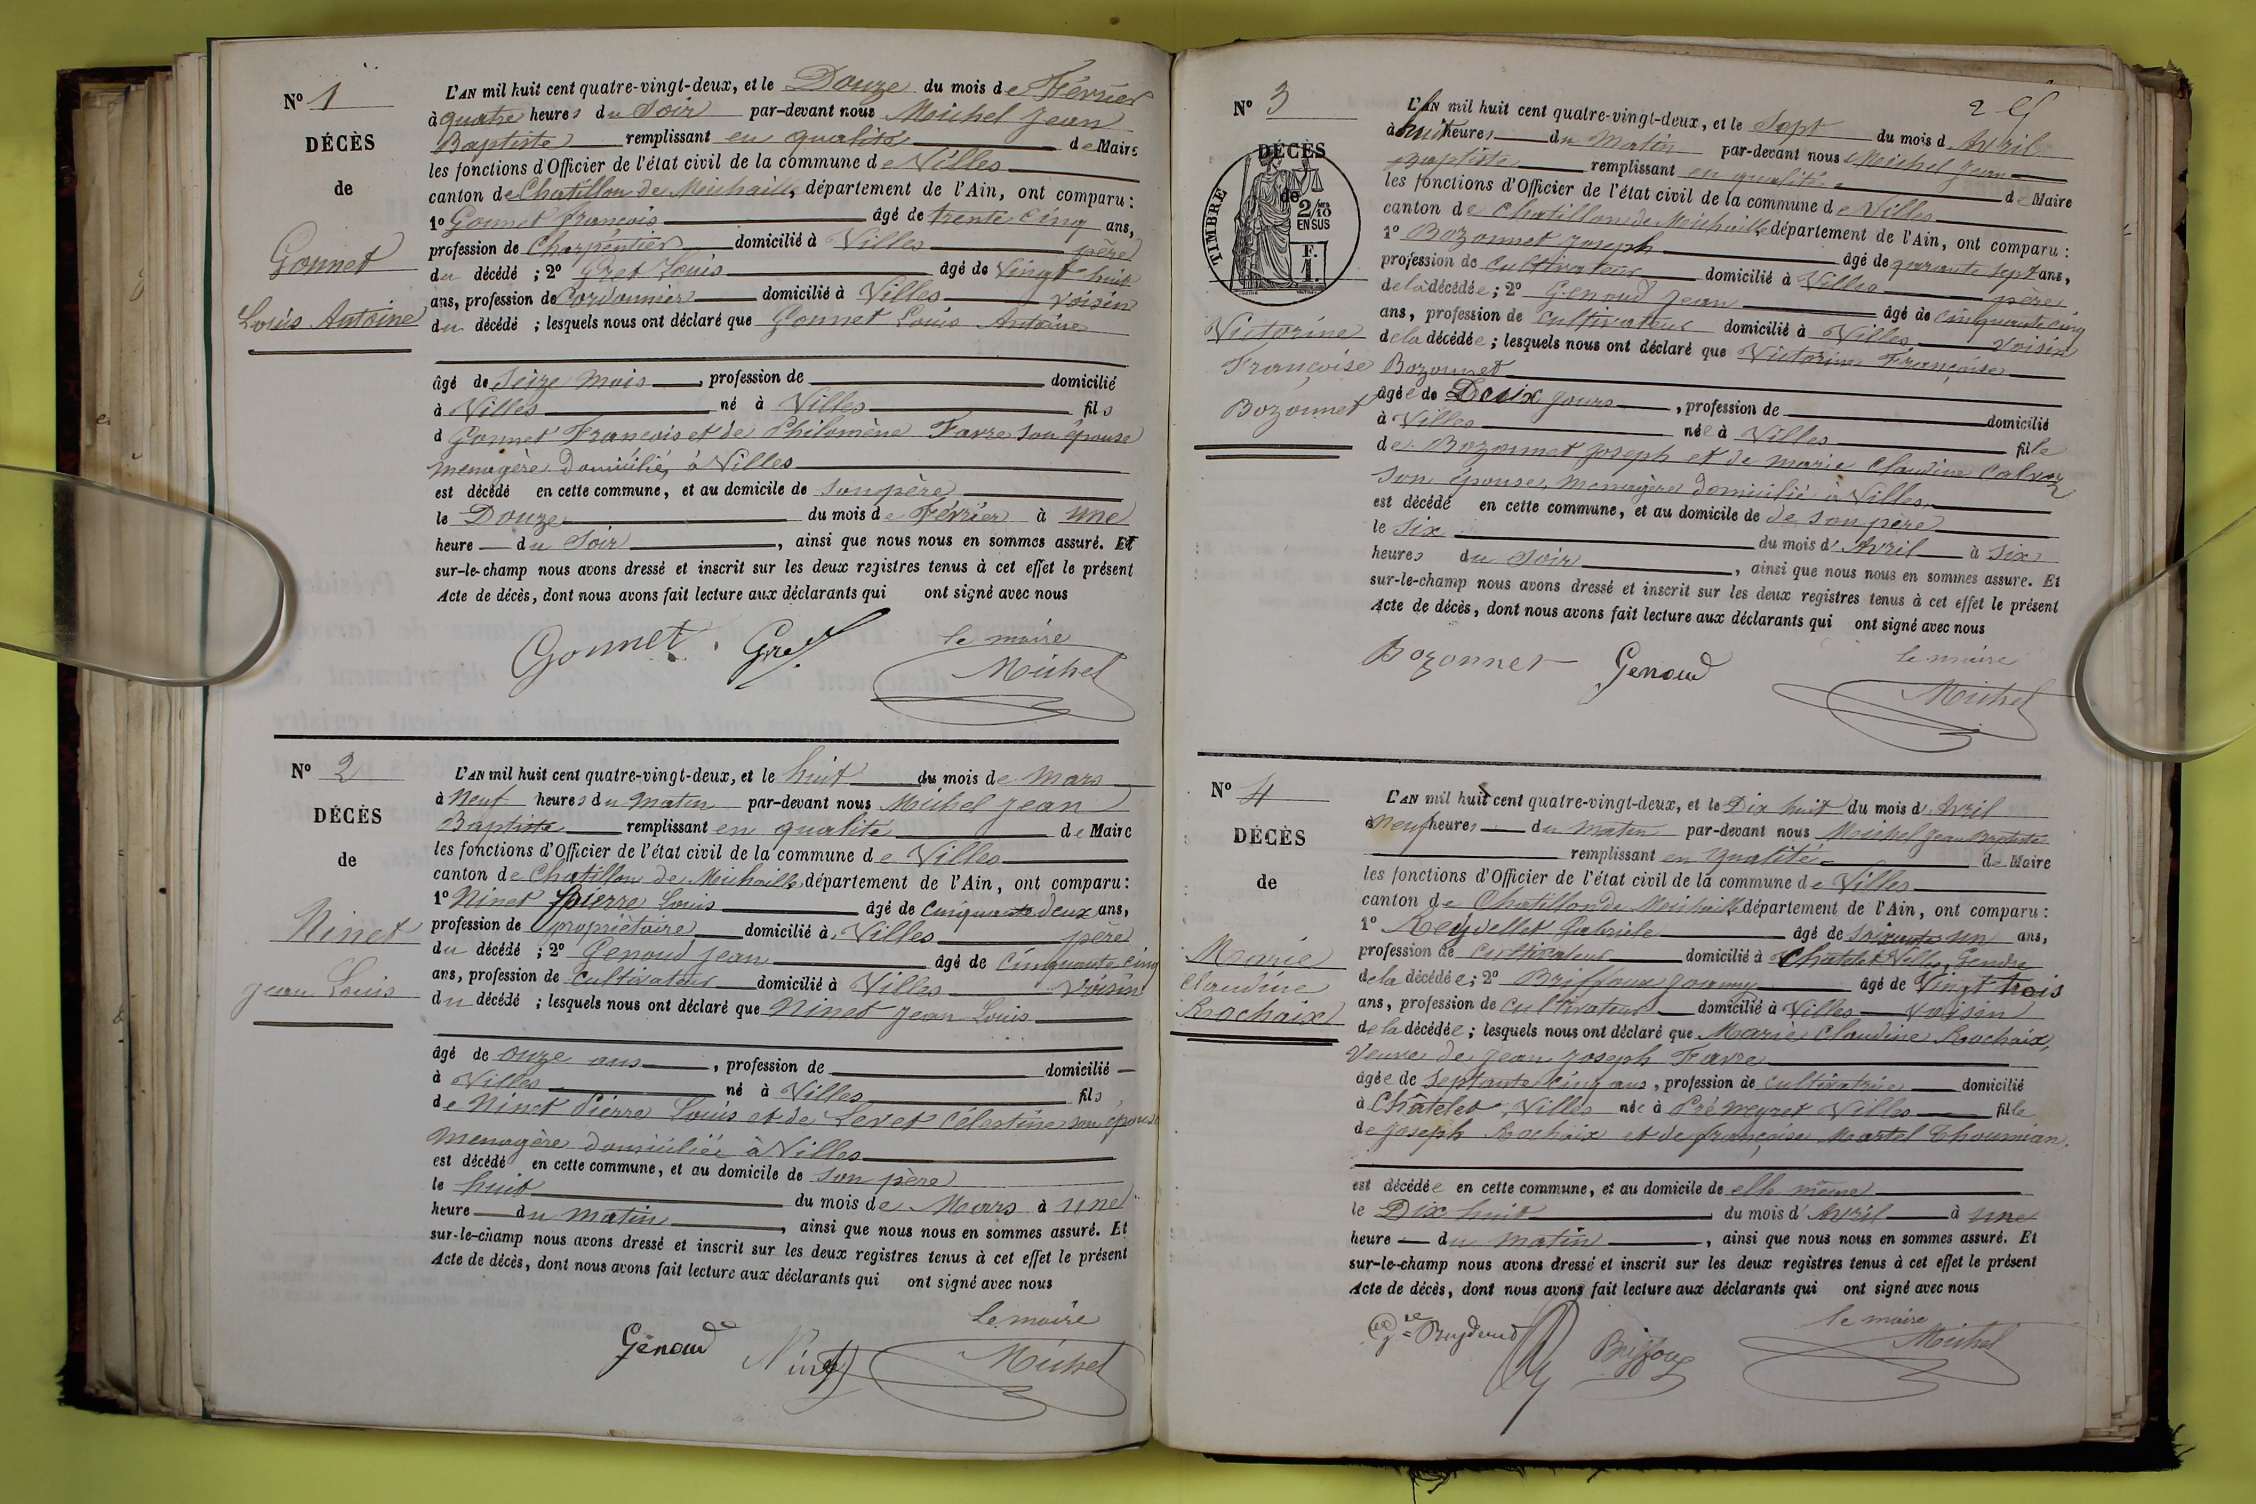 N° 1
DÉCÈS
de
Gonnet
Louis Antoine
L'AN mil huit cent quatre-vingt-deux, et le Douze du mois de Février
à quatre heures du Soir par-devant nous Michel Jean
Baptiste remplissant en qualité de Maire
les fonctions d'Officier de l'état civil de la commune de Villes
canton de Chatillon de Michaille, département de l'Ain, ont comparu :
1° Gonnet françois âgé de trente cinq ans,
profession de Charpentier domicilié à Villes père
du décédé ; 2° Gret Louis âgé de Vingt huit
ans, profession de Cordonnier domicilié à Villes voisin
du décédé ; lesquels nous ont déclaré que Gonnet Louis Antoine
âgé de Seize mois, profession de domicilié
à Villes né à Villes fils
d Gonnet François et de Philomène Favre son épouse
menagère domicilié à Villes
est décédé en cette commune, et au domicile de son père
le Douze du mois de Février à une
heure du Soir, ainsi que nous nous en sommes assuré. Et
sur-le-champ nous avons dressé et inscrit sur les deux registres tenus à cet effet le présent
Acte de décès, dont nous avons fait lecture aux déclarants qui ont signé avec nous
Gonnet. Gret le maire
Michel
N° 2
DÉCÈS
de
Ninet
Jean Louis
L'AN mil huit cent quatre-vingt-deux, et le huit du mois de Mars
à Neuf heures du matin par-devant nous Michel Jean
Baptiste remplissant en qualité de Maire
les fonctions d'Officier de l'état civil de la commune de Villes
canton de Chatillon de Michaille, département de l'Ain, ont comparu :
1° Ninet Pierre Louis âgé de cinquante deux ans,
profession de propriétaire domicilié à Villes père
du décédé ; 2° Genoud Jean âgé de Cinquante cinq
ans, profession de cultivateur domicilié à Villes Voisin
du décédé ; lesquels nous ont déclaré que Ninet Jean Louis
âgé de onze ans, profession de domicilié
à Villes né à Villes fils
de Ninet Pierre Louis et de Levet Célestine son épouse
menagère domiciliée à Villes
est décédé en cette commune, et au domicile de son père
le huit du mois de Mars à une
heure du matin, ainsi que nous nous en sommes assuré. Et
sur-le-champ nous avons dressé et inscrit sur les deux registres tenus à cet effet le présent
Acte de décès, dont nous avons fait lecture aux déclarants qui ont signé avec nous
le maire
Genoud Ninet Michel
2
N° 3
DÉCÈS
de
TIMBRE
2/10
EN SUS
F.
1
Victorine
Françoise
Bozonnet
L'AN mil huit cent quatre-vingt-deux, et le Sept du mois d Avril
à huit heures du Matin par-devant nous Michel Jean
Baptiste remplissant en qualité de Maire
les fonctions d'Officier de l'état civil de la commune de Villes
canton de Chatillon de Michaille, département de l'Ain, ont comparu :
1° Bozonnet Joseph âgé de quarante sept ans,
profession de cultivateur domicilié à Villes père
de la décédée ; 2° Genoud Jean âgé de cinquante cinq
ans, profession de cultivateur domicilié à Villes voisin
de la décédée ; lesquels nous ont déclaré que Victorine Françoise
Bozonnet
âgée de Deux jours, profession de domicilié
à Villes née à Villes fille
de Bozonnet Joseph et de Marie Claudine Calvoz
son épouse, menagère domicilié à Villes
est décédé en cette commune, et au domicile de de son père
le six du mois d' Avril à six
heures du Soir, ainsi que nous nous en sommes assuré. Et
sur-le-champ nous avons dressé et inscrit sur les deux registres tenus à cet effet le présent
Acte de décès, dont nous avons fait lecture aux déclarants qui ont signé avec nous
Bozonnet Genoud le maire
Michel
N° 4
DÉCÈS
de
Marie
Claudine
Rochaix
L'AN mil huit cent quatre-vingt-deux, et le Dix huit du mois d' Avril
à Neuf heures du matin par-devant nous Michel Jean Baptiste
remplissant en qualité de Maire
les fonctions d'Officier de l'état civil de la commune de Villes
canton de Chatillon de Michaille, département de l'Ain, ont comparu :
1° Reydellet Gabriele âgé de soixante un ans,
profession de cultivateur domicilié à Chatelet Villes, Gendre
de la décédée ; 2° Briffoux âgé de Vingt trois
ans, profession de cultivateur domicilié à Villes voisin
de la décédée ; lesquels nous ont déclaré que Marie Claudine Rochaix,
Veuve de Jean Joseph Favre
âgée de Septante cinq ans, profession de cultivatrice domicilié
à Châtelet, Villes née à Pré Meyret Villes fille
de Joseph Rochaix et de françoise Martel Thoumian.
est décédée en cette commune, et au domicile de elle même
le Dix huit du mois d' Avril à une
heure du matin, ainsi que nous nous en sommes assuré. Et
sur-le-champ nous avons dressé et inscrit sur les deux registres tenus à cet effet le présent
Acte de décès, dont nous avons fait lecture aux déclarants qui ont signé avec nous
le maire
Briffoux Michel